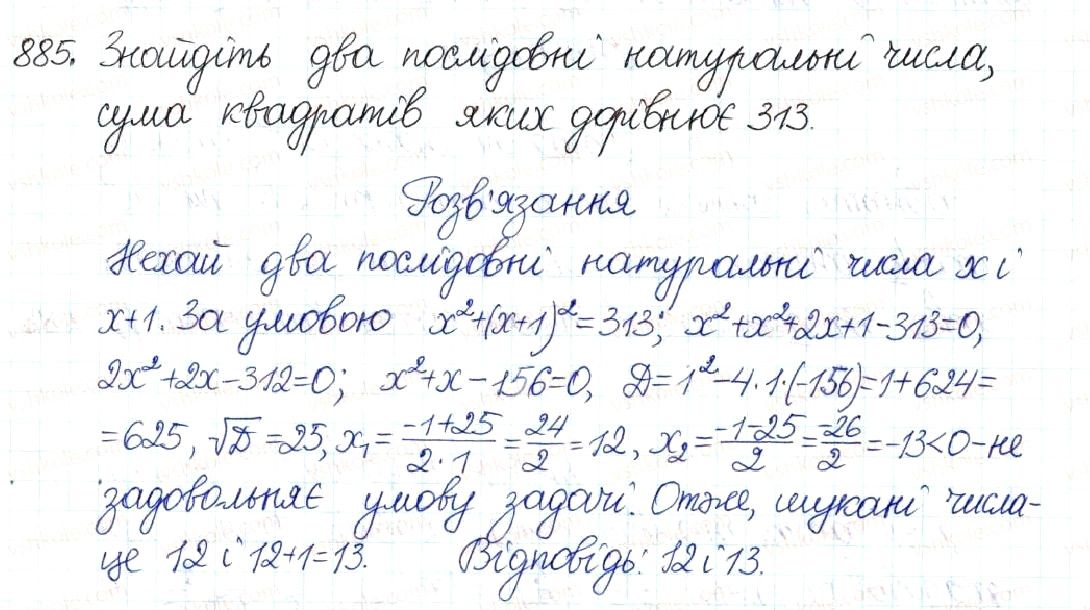 885. Знайдіть два послідовні натуральні числа,
сума квадратів яких дорівнює 313.
Розв'язання
Нехай два послідовні натуральні числа x і
x+1. За умовою x²+(x+1)²=313; x²+x²+2x+1-313=0,
2x²+2x-312=0; x²+x-156=0, D=1²-4·1·(-156)=1+624=
=625, √D=25, x₁=(-1+25)/(2·1)=24/2=12, x₂=(-1-25)/2=-26/2=-13<0-не
задовольняє умову задачі. Отже, шукані числа-
це 12 і 12+1=13. Відповідь: 12 і 13.